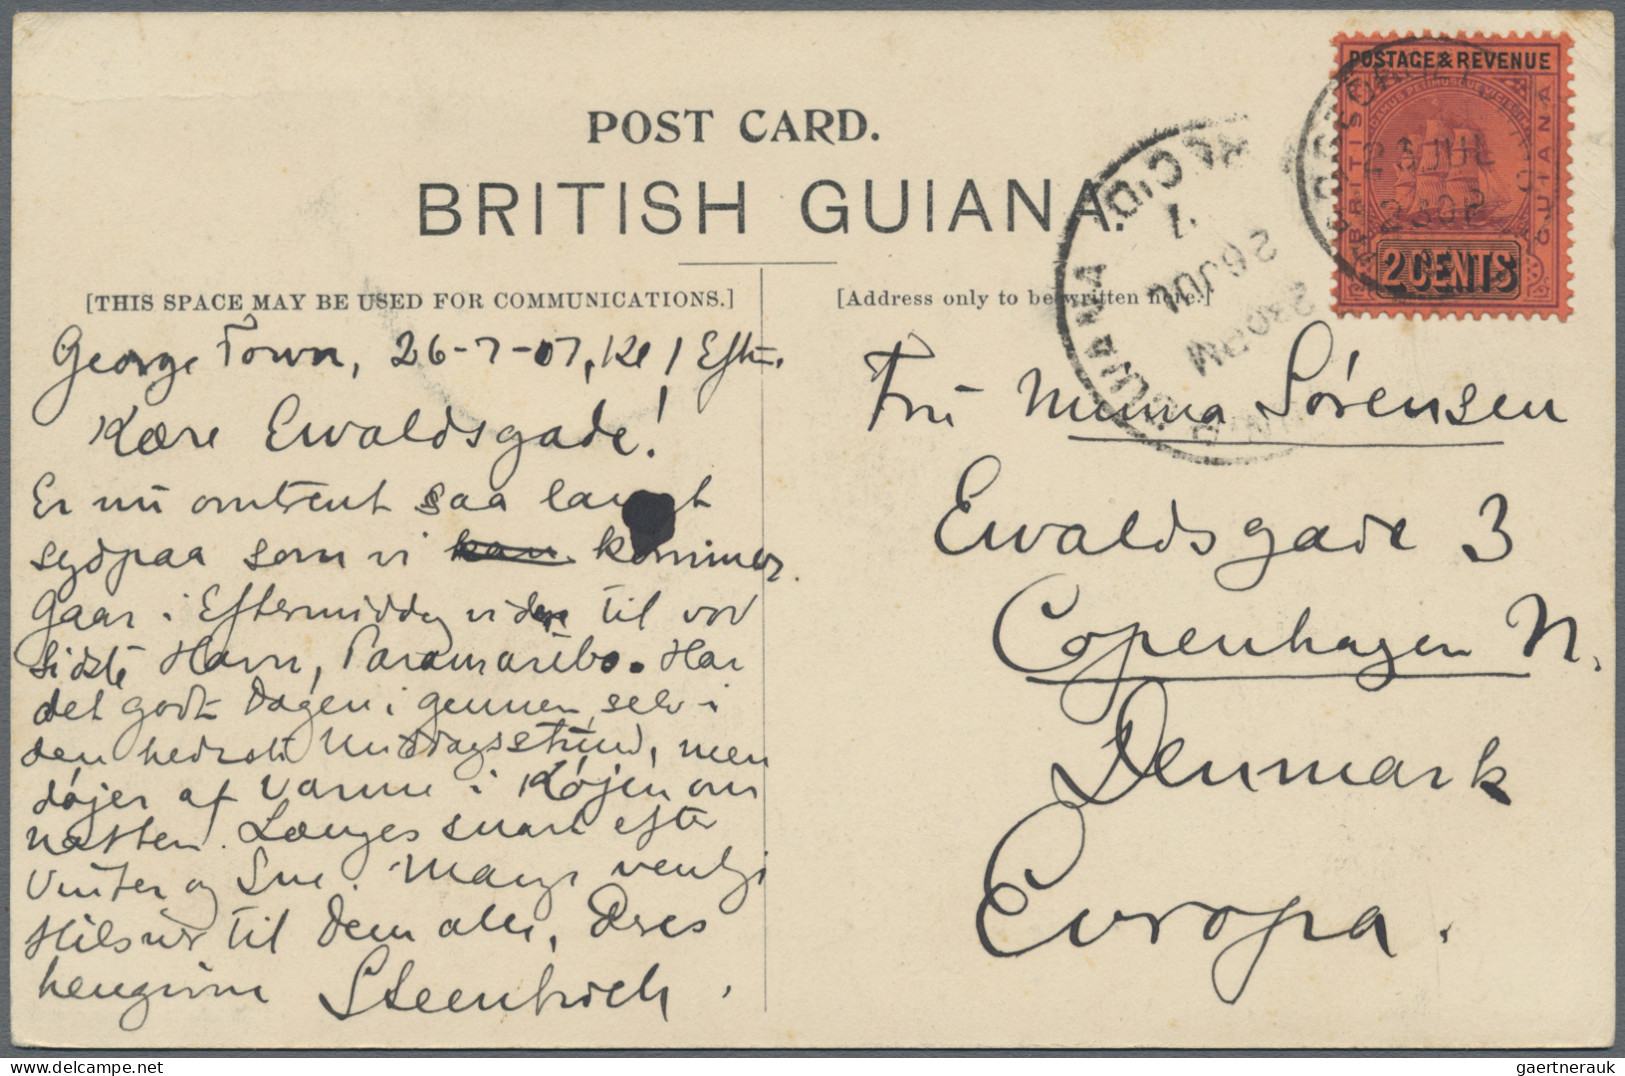 POST CARD.
BRITISH GUIANA.
[THIS SPACE MAY BE USED FOR COMMUNICATIONS.]
[Address only to be written here.]
George Town, 26-7-07, Kl 1 Eftm.
Kære Ewaldsgade!
Er nu omtrent saa langt
sydpaa som vi kan kommer.
Gaar i Eftermiddag videre til vor
sidste Havn, Paramaribo. Har
det godt Dagen i gennem, selv i
den hedeste Middagsstund, men
døjer af Varme i Køjen om
Natten. Længes snart efter
Vinter og Sne. Mange venlige
Hilsner til Dem alle, Deres
hengivne Steenbuch.
Fru Minna Sørensen
Ewaldsgade 3
Copenhagen N.
Denmark
Europa.
POSTAGE & REVENUE
BRITISH
GUIANA
2 CENTS
REC'D
1
26 JUL
230PM
GUIANA
gaertnerauk